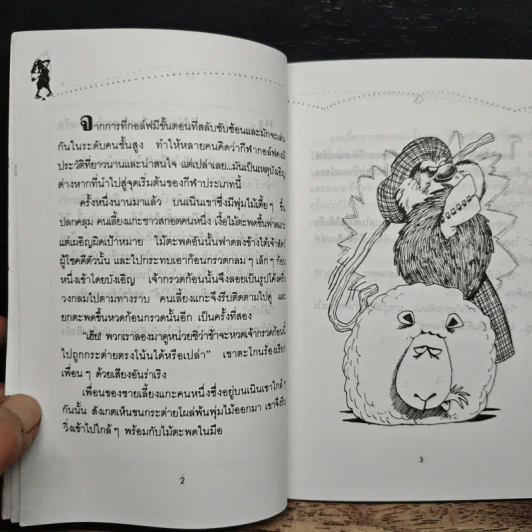 จากการที่กอล์ฟมีขั้นตอนที่สลับซับซ้อนและมักจะเล่น
กันในระดับคนชั้นสูง ทำให้หลายคนคิดว่ากีฬากอล์ฟคงมี
ประวัติที่ยาวนานและน่าสนใจ แต่เปล่าเลย...มันเป็นเหตุบังเอิญ
ต่างหากที่นำไปสู่จุดเริ่มต้นของกีฬาประเภทนี้
ครั้งหนึ่งนานมาแล้ว บนเนินเขาซึ่งมีพุ่มไม้เตี้ยๆ ขึ้น
ปลกคลุม คนเลี้ยงแกะชาวสกอตคนหนึ่ง เงื้อไม้ตะพดขึ้นฟาดแกะ
แต่เผอิญผิดเป้าหมาย ไม้ตะพดอันนั้นฟาดลงข้างใต้เจ้าสัตว์
ผู้โชคดีตัวนั้น และไปกระทบเอาก้อนกรวดกลมๆ เล็กๆ ก้อน
หนึ่งเข้าโดยบังเอิญ เจ้ากรวดก้อนนั้นจึงลอยเป็นรูปโค้งครึ่ง
วงกลมไปตามทางราบ คนเลี้ยงแกะจึงรีบติดตามไปดู และ
ยกตะพดขึ้นหวดก้อนกรวดนั้นอีก เป็นครั้งที่สอง
"เฮ้ย! พวกเราลองมาดูหน่อยซิว่าข้าจะหวดเจ้ากรวดก้อนนี้
ไปถูกกระต่ายตรงโน้นได้หรือเปล่า" เขาตะโกนร้องเรียก
เพื่อนๆ ด้วยเสียงอันร่าเริง
เพื่อนของชายเลี้ยงแกะคนหนึ่งซึ่งอยู่บนเนินเขาใกล้ๆ
กันนั้น สังเกตเห็นขนกระต่ายโผล่พ้นพุ่มไม้ออกมา เขาจึงรีบ
วิ่งเข้าไปใกล้ๆ พร้อมกับไม้ตะพดในมือ
2
3